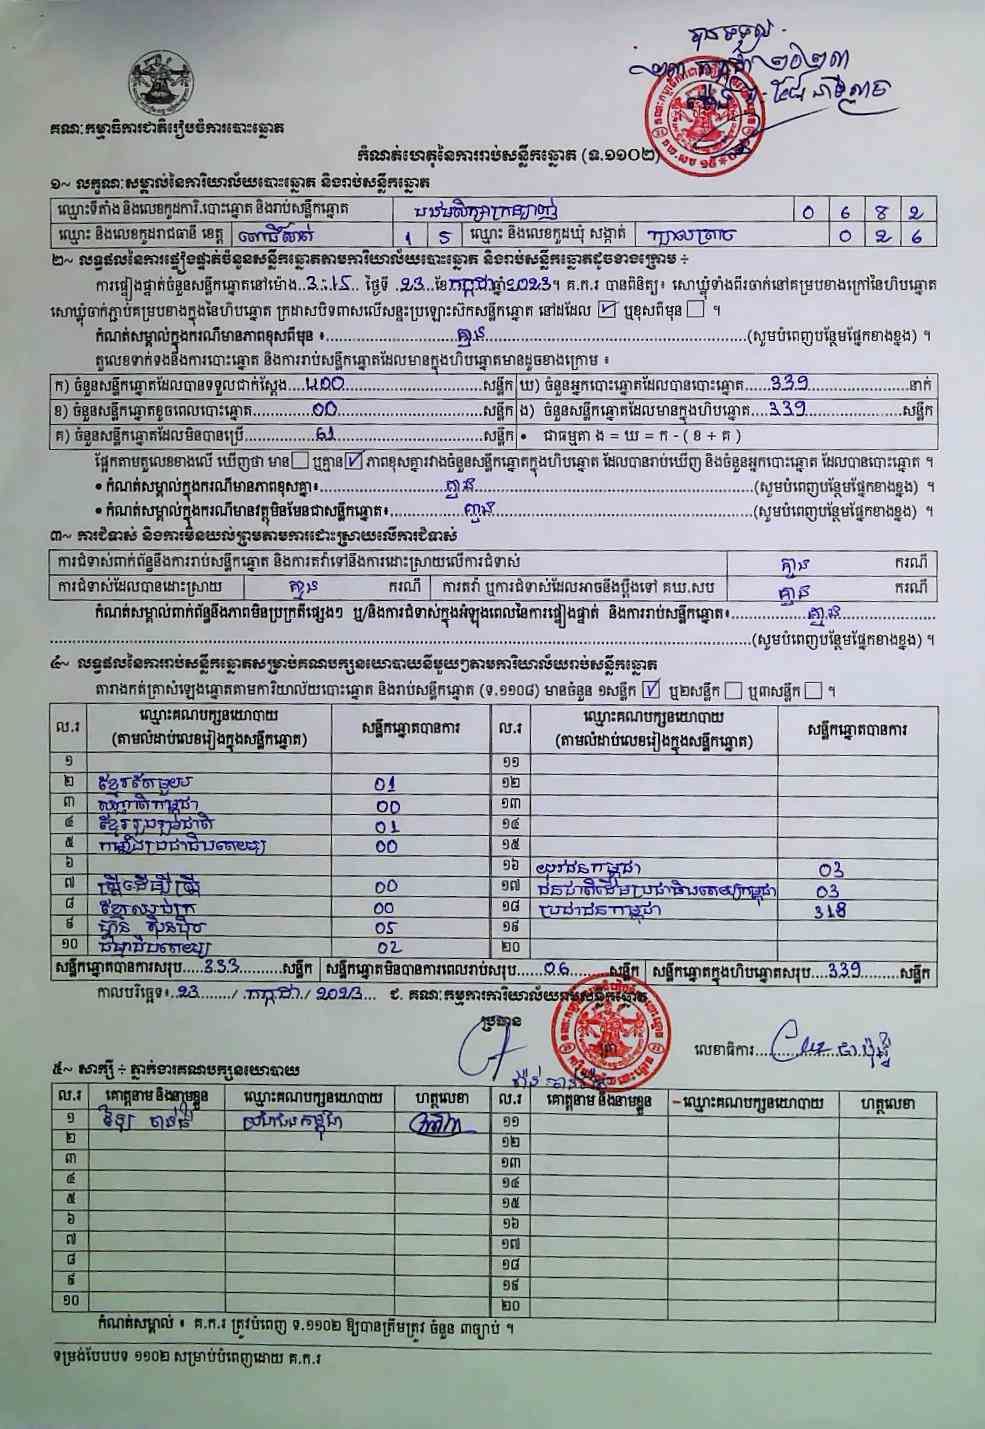 បានទទួល
២៣ កក្កដា ២០២៣
គណៈកម្មាធិការជាតិរៀបចំការបោះឆ្នោត
កំណត់ហេតុនៃការរាប់សន្លឹកឆ្នោត (ទ.១១០២)
១~ លក្ខណៈសម្គាល់នៃការិយាល័យបោះឆ្នោត និងរាប់សន្លឹកឆ្នោត
ឈ្មោះទីតាំង និងលេខកូដការិ.បោះឆ្នោត និងរាប់សន្លឹកឆ្នោត 0 6 8 2
ឈ្មោះ និងលេខកូដរាជធានី ខេត្ត ពោធិ៍សាត់ 1 5 ឈ្មោះ និងលេខកូដឃុំ សង្កាត់ ក្បាលត្រាច 0 2 6
២~ លទ្ធផលនៃការផ្ទៀងផ្ទាត់ចំនួនសន្លឹកឆ្នោតតាមការិយាល័យបោះឆ្នោត និងរាប់សន្លឹកឆ្នោតដូចខាងក្រោម ÷
ការផ្ទៀងផ្ទាត់ចំនួនសន្លឹកឆ្នោតនៅម៉ោង..3:15.. ថ្ងៃទី .23..ខែកក្កដាឆ្នាំ2023។ គ.ក.រ បានពិនិត្យ៖ សោឃ្លុំទាំងពីរចាក់នៅគម្របខាងក្រៅនៃហិបឆ្នោត
សោឃ្លុំចាក់ភ្ជាប់គម្របខាងក្នុងនៃហិបឆ្នោត ក្រដាសបិទពាសលើសន្ទះប្រឡោះស៊កសន្លឹកឆ្នោត នៅដដែល ☑ ឬខុសពីមុន ☐ ។
កំណត់សម្គាល់ក្នុងករណីមានភាពខុសពីមុន ៖ គ្មាន (សូមបំពេញបន្ថែមផ្នែកខាងខ្នង) ។
តួលេខទាក់ទងនឹងការបោះឆ្នោត និងការរាប់សន្លឹកឆ្នោតដែលមានក្នុងហិបឆ្នោតមានដូចខាងក្រោម ៖
ក) ចំនួនសន្លឹកឆ្នោតដែលបានទទួលជាក់ស្តែង 400 សន្លឹក ឃ) ចំនួនអ្នកបោះឆ្នោតដែលបានបោះឆ្នោត 339 នាក់
ខ) ចំនួនសន្លឹកឆ្នោតខូចពេលបោះឆ្នោត 00 សន្លឹក ង) ចំនួនសន្លឹកឆ្នោតដែលមានក្នុងហិបឆ្នោត 339 សន្លឹក
គ) ចំនួនសន្លឹកឆ្នោតដែលមិនបានប្រើ 61 សន្លឹក • ជាធម្មតា ង = ឃ = ក - ( ខ + គ )
ផ្អែកតាមតួលេខខាងលើ ឃើញថា មាន ☐ ឬគ្មាន ☑ ភាពខុសគ្នារវាងចំនួនសន្លឹកឆ្នោតក្នុងហិបឆ្នោត ដែលបានរាប់ឃើញ និងចំនួនអ្នកបោះឆ្នោត ដែលបានបោះឆ្នោត ។
• កំណត់សម្គាល់ក្នុងករណីមានភាពខុសគ្នា៖ គ្មាន (សូមបំពេញបន្ថែមផ្នែកខាងខ្នង) ។
• កំណត់សម្គាល់ក្នុងករណីមានវត្ថុមិនមែនជាសន្លឹកឆ្នោត៖ គ្មាន (សូមបំពេញបន្ថែមផ្នែកខាងខ្នង) ។
៣~ ការជំទាស់ និងការមិនយល់ព្រមតាមការដោះស្រាយលើការជំទាស់
ការជំទាស់ពាក់ព័ន្ធនឹងការរាប់សន្លឹកឆ្នោត និងការតវ៉ាទៅនឹងការដោះស្រាយលើការជំទាស់ គ្មាន ករណី
ការជំទាស់ដែលបានដោះស្រាយ គ្មាន ករណី ការតវ៉ា ឬការជំទាស់ដែលអាចនឹងប្តឹងទៅ គឃ.សប គ្មាន ករណី
កំណត់សម្គាល់ពាក់ព័ន្ធនឹងភាពមិនប្រក្រតីផ្សេងៗ ឬ/និងការជំទាស់ក្នុងអំឡុងពេលនៃការផ្ទៀងផ្ទាត់ និងការរាប់សន្លឹកឆ្នោត៖ គ្មាន
(សូមបំពេញបន្ថែមផ្នែកខាងខ្នង) ។
៤~ លទ្ធផលនៃការរាប់សន្លឹកឆ្នោតសម្រាប់គណបក្សនយោបាយនីមួយៗតាមការិយាល័យរាប់សន្លឹកឆ្នោត
តារាងកត់ត្រាសំឡេងឆ្នោតតាមការិយាល័យបោះឆ្នោត និងរាប់សន្លឹកឆ្នោត (ទ.១១០៨) មានចំនួន ១សន្លឹក ☑ ឬ២សន្លឹក ☐ ឬ៣សន្លឹក ☐ ។
ល.រ ឈ្មោះគណបក្សនយោបាយ (តាមលំដាប់លេខរៀងក្នុងសន្លឹកឆ្នោត) សន្លឹកឆ្នោតបានការ ល.រ ឈ្មោះគណបក្សនយោបាយ (តាមលំដាប់លេខរៀងក្នុងសន្លឹកឆ្នោត) សន្លឹកឆ្នោតបានការ
១ ១១
២ ខ្មែរតែមួយ 01 ១២
៣ សញ្ជាតិកម្ពុជា 00 ១៣
៤ ខ្មែររួបរួមជាតិ 01 ១៤
៥ កម្លាំងប្រជាធិបតេយ្យ 00 ១៥
៦ ១៦ យុវជនកម្ពុជា 03
៧ ស្ត្រីដើម្បីស្ត្រី 00 ១៧ ជនជាតិដើមប្រជាធិបតេយ្យកម្ពុជា 03
៨ ខ្មែរឈប់ក្រ 00 ១៨ ប្រជាជនកម្ពុជា 318
៩ ហ្វ៊ុនស៊ិនប៉ិច 05 ១៩
១០ ធម្មាធិបតេយ្យ 02 ២០
សន្លឹកឆ្នោតបានការសរុប 333 សន្លឹក សន្លឹកឆ្នោតមិនបានការពេលរាប់សរុប 06 សន្លឹក សន្លឹកឆ្នោតក្នុងហិបឆ្នោតសរុប 339 សន្លឹក
កាលបរិច្ឆេទ៖ 23 / កក្កដា / 2023 ជ. គណៈកម្មការការិយាល័យរាប់សន្លឹកឆ្នោត
ប្រធាន
លេខាធិការ
៥~ សាក្សី ÷ ភ្នាក់ងារគណបក្សនយោបាយ
ល.រ គោត្តនាម និងនាមខ្លួន ឈ្មោះគណបក្សនយោបាយ ហត្ថលេខា ល.រ គោត្តនាម និងនាមខ្លួន ឈ្មោះគណបក្សនយោបាយ ហត្ថលេខា
១ ប្រជាជនកម្ពុជា ១១
២ ១២
៣ ១៣
៤ ១៤
៥ ១៥
៦ ១៦
៧ ១៧
៨ ១៨
៩ ១៩
១០ ២០
កំណត់សម្គាល់ ៖ គ.ក.រ ត្រូវបំពេញ ទ.១១០២ ឱ្យបានត្រឹមត្រូវ ចំនួន ៣ច្បាប់ ។
ទម្រង់បែបបទ ១១០២ សម្រាប់បំពេញដោយ គ.ក.រ